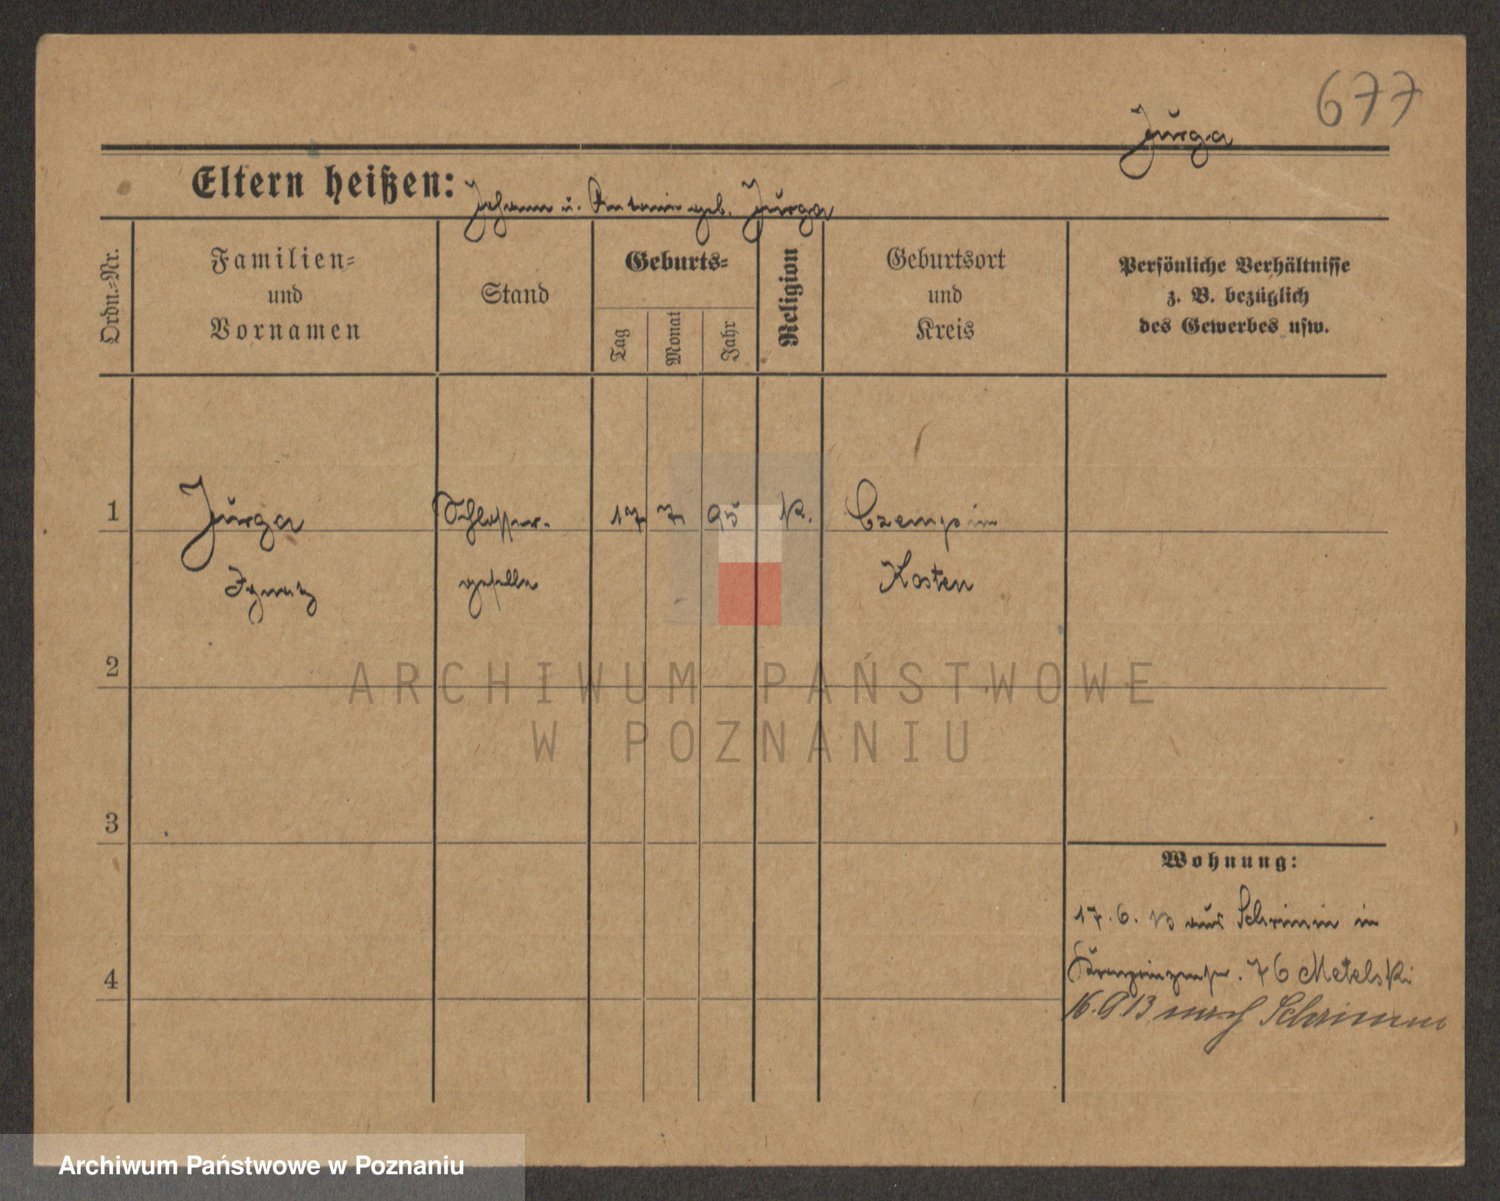 677
Jurga
Eltern heißen: Johann u. Antonie geb. Jurga
Ordn.-Nr.
Familien-
und
Vornamen
Stand
Geburts-
Tag
Monat
Jahr
Religion
Geburtsort
und
Kreis
Persönliche Verhältnisse
z. B. bezüglich
des Gewerbes usw.
1 Jurga Schlosser- 17 7 95 K. Czempin
Ignatz geselle Kosten
2
ARCHIWUM PAŃSTWOWE
W POZNANIU
3
Wohnung:
17.6.13 aus Schrimm in
76 Metelski
4
16.9 13 nach Schrimm
Archiwum Państwowe w Poznaniu